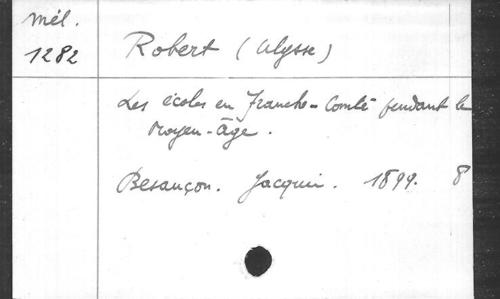 Mél.
1282
Robert (Ulysse)
Les écoles en Franche-Comté pendant le
Moyen-âge.
Besançon. Jacquin. 1899. 8